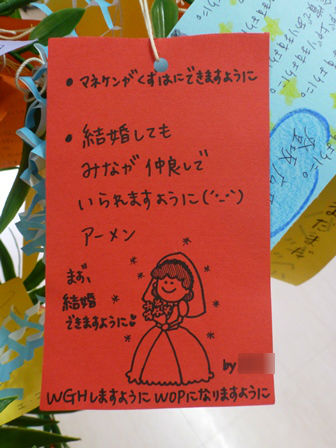 • マネケンがくずはにできますように
• 結婚しても
みなが仲良しで
いられますように(´ー`)
アーメン
まず、
結婚
できますように
by
WGHしますように WOPになりますように